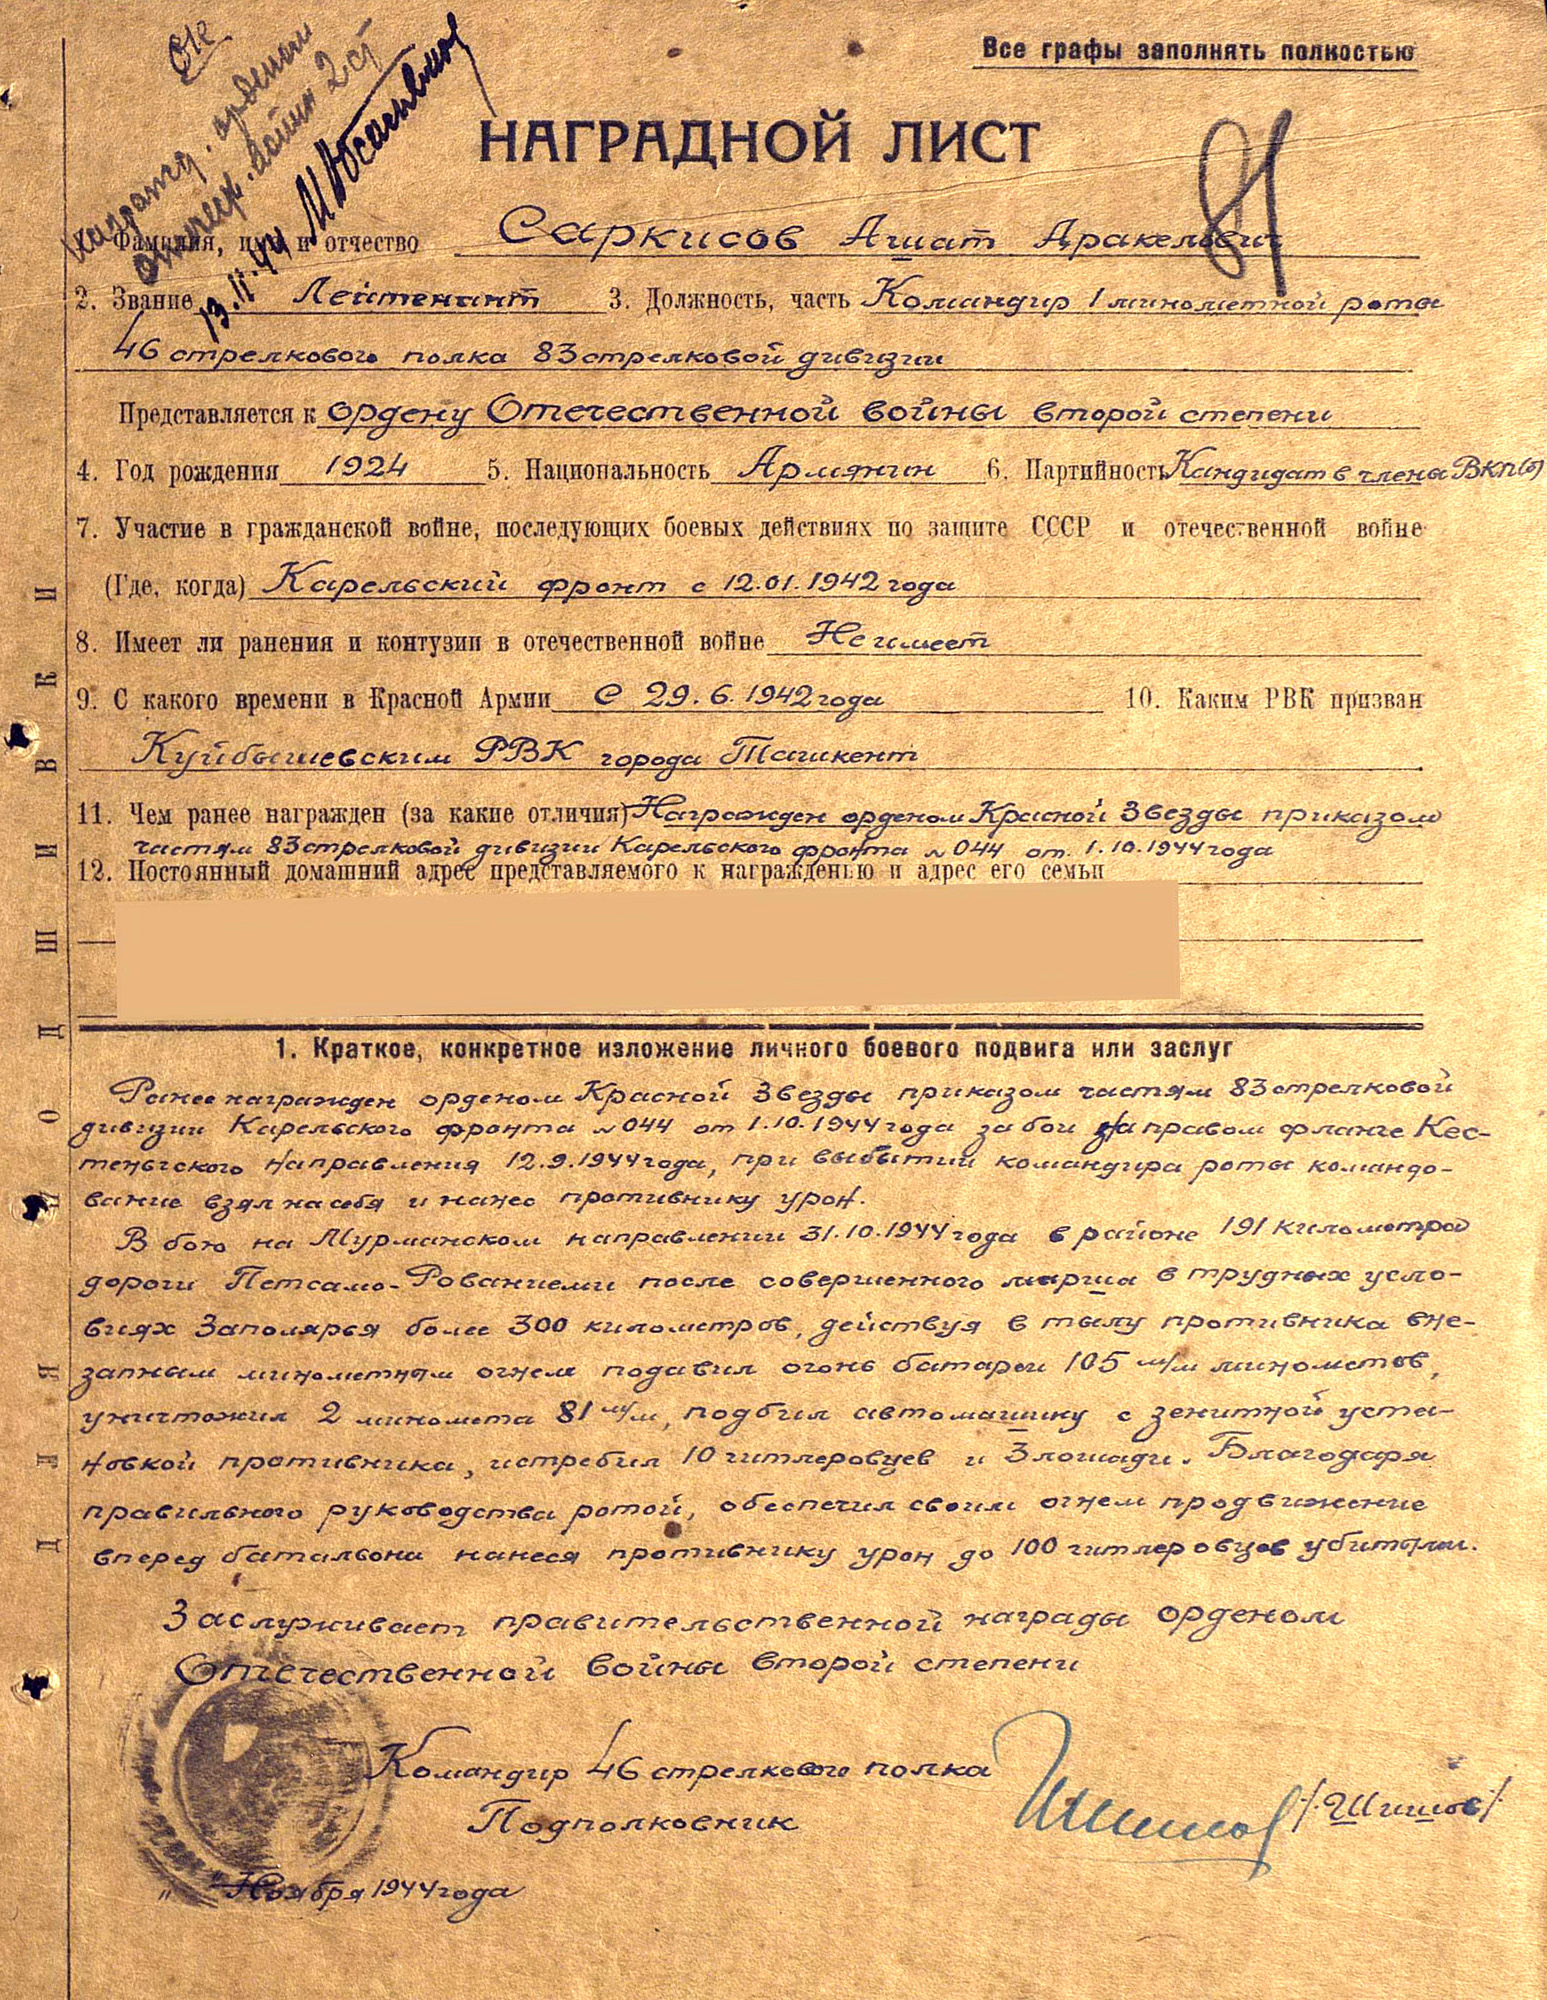 Все графы заполнять полностью
НАГРАДНОЙ ЛИСТ
81
ОК
Наградить орденом
отечеств. войны 2 ст
13.11.44
Фамилия, имя и отчество Саркисов Ашат Аракелович
2. Звание Лейтенант 3. Должность, часть Командир 1 минометной роты
46 стрелкового полка 83 стрелковой дивизии
Представляется к ордену Отечественной войны второй степени
4. Год рождения 1924 5. Национальность Армянин 6. Партийность Кандидат в члены ВКП(б)
7. Участие в гражданской войне, последующих боевых действиях по защите СССР и отечественной войне
(Где, когда) Карельский фронт с 12.01.1942 года
8. Имеет ли ранения и контузии в отечественной войне Не имеет
9. С какого времени в Красной Армии С 29.6.1942 года 10. Каким РВК призван
Куйбышевским РВК города Ташкент
11. Чем ранее награжден (за какие отличия) Награжден орденом Красной Звезды приказом
частям 83 стрелковой дивизии Карельского фронта №044 от 1.10.1944 года
12. Постоянный домашний адрес представляемого к награждению и адрес его семьи
1. Краткое, конкретное изложение личного боевого подвига или заслуг
Ранее награжден орденом Красной Звезды приказом частям 83 стрелковой
дивизии Карельского фронта №044 от 1.10.1944 года за бои на правом фланге Кес-
теньгского направления 12.9.1944 года, при выбытии командира роты командо-
вание взял на себя и нанес противнику урон.
В бою на Мурманском направлении 31.10.1944 года в районе 191 километра
дороги Петсамо-Рованиеми после совершенного марша в трудных усло-
виях Заполярья более 300 километров, действуя в тылу противника вне-
запным минометным огнем подавил огонь батареи 105 м/м минометов,
уничтожил 2 миномета 81 м/м, подбил автомашину с зенитной уста-
новкой противника, истребил 10 гитлеровцев и 3 лошади. Благодаря
правильного руководства ротой, обеспечил своим огнем продвижение
вперед батальона нанеся противнику урон до 100 гитлеровцев убитыми.
Заслуживает правительственной награды орденом
Отечественной войны второй степени
Командир 46 стрелкового полка
Подполковник /Шишов/
" " Ноября 1944 года
ДЛЯ ПОДШИВКИ